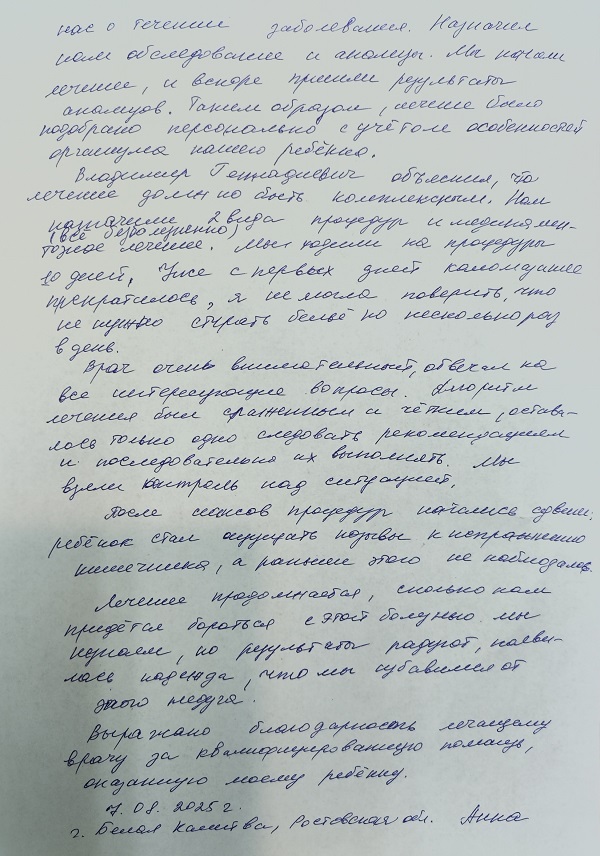 нас о течении заболевания. Назначил
нам обследование и анализы. Мы начали
лечение, и вскоре пришли результаты
анализов. Таким образом, лечение было
подобрано персонально с учётом особенностей
организма нашего ребёнка.
Владимир Геннадиевич объяснил, что
лечение должно быть комплексным. Нам
назначили 2 вида процедур и медикамен-
(все безболезненно)
тозное лечение. Мы ходили на процедуры
10 дней. Уже с первых дней каломазание
прекратилось, я не могла поверить, что
не нужно стирать бельё по несколько раз
в день.
Врач очень внимательный, отвечал на
все интересующие вопросы. Алгоритм
лечения был слаженным и чётким, остава-
лось только одно следовать рекомендациям
и последовательно их выполнять. Мы
взяли контроль над ситуацией.
После сеансов процедур начались сдвиги:
ребёнок стал ощущать позывы к испражнению
кишечника, а раньше этого не наблюдалось.
Лечение продолжается, сколько нам
придётся бороться с этой болезнью мы
не знаем, но результаты радуют, появи-
лась надежда, что мы избавимся от
этого недуга.
Выражаю благодарность лечащему
врачу за квалифицированную помощь,
оказанную моему ребёнку.
7.08.2025 г.
г. Белая Калитва, Ростовская обл. Анна